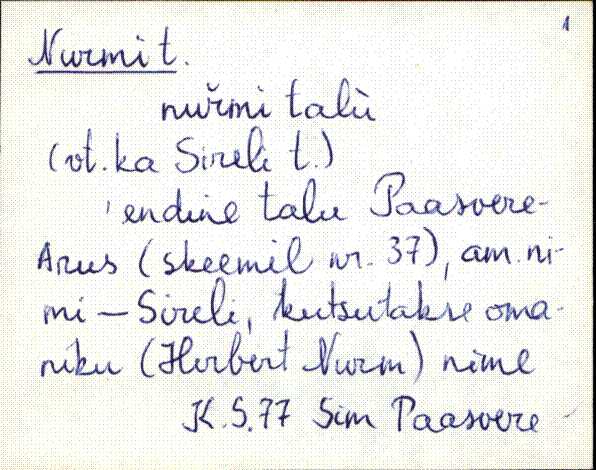 1
Nurmi t.
nuřmi talù
(vt. ka Sireli t.)
endine talu Paasvere-
Arus (skeemil nr. 37), am. ni-
mi – Sireli, kutsutakse oma-
niku (Herbert Nurm) nime
K.S.77 Sim Paasvere -